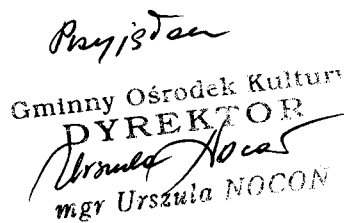 Przyjęłam
Gminny Ośrodek Kultury
DYREKTOR
Urszula Nocoń
mgr Urszula NOCOŃ